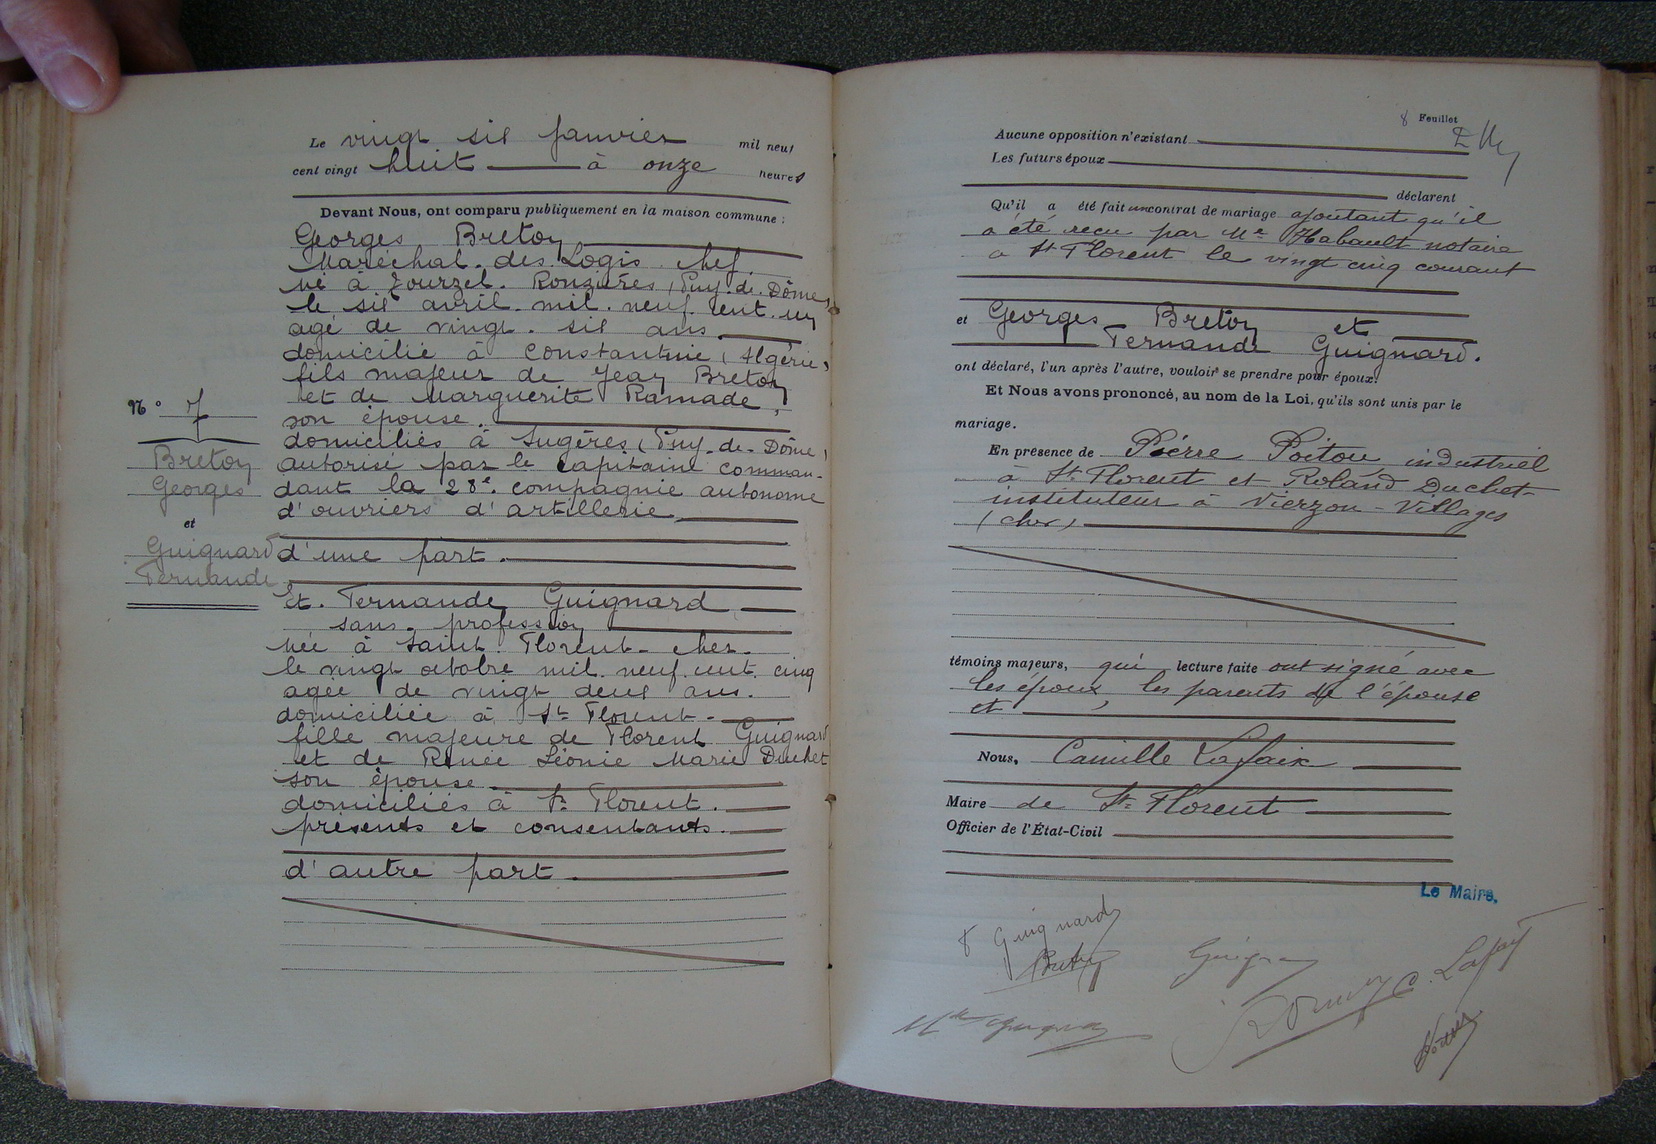 Le vingt six Janvier mil neuf
cent vingt huit à onze heures
Devant Nous, ont comparu publiquement en la maison commune :
Georges Breton
Maréchal des Logis chef
né à Tourzel. Ronzières (Puy. de. Dôme)
le six avril mil. neuf. cent. un
agé de vingt. six ans
domicilié à Constantine (Algérie)
fils majeur de Jean Breton
et de Marguerite Ramade,
son épouse.
domiciliés à Sugères (Puy. de. Dôme)
autorisé par le Capitaine comman-
dant la 28e compagnie autonome
d'ouvriers d'artillerie
d'une part.
N° 7
Breton
Georges
et
Guignard
Fernande
Et. Fernande Guignard
sans profession
née à Saint Florent - cher.
le vingt octobre mil. neuf. cent cinq
agée de vingt deux ans.
domiciliée à St Florent.
fille majeure de Florent Guignard
et de Renée Léonie Marie Duchet
son épouse
domiciliés à St Florent.
présents et consentants.
d'autre part.
8 Feuillet
Aucune opposition n'existant
Les futurs époux
déclarent
Qu'il a été fait un contrat de mariage ajoutant qu'il
a été recu par Me Habault notaire
a St Florent le vingt cinq courant
et Georges Breton et
Fernande Guignard.
ont déclaré, l'un après l'autre, vouloir se prendre pour époux.
Et Nous avons prononcé, au nom de la Loi, qu'ils sont unis par le
mariage.
En présence de Pierre Poitou industriel
à St Florent et Roland Duchet
instituteur à Vierzon-Villages
(cher)
témoins majeurs, qui lecture faite ont signé avec
les époux, les parents de l'épouse
et
Nous, Camille Lafaix
Maire de St Florent
Officier de l'État-Civil
Le Maire,
F Guignard
Breton
Guignard
C. Lafaix